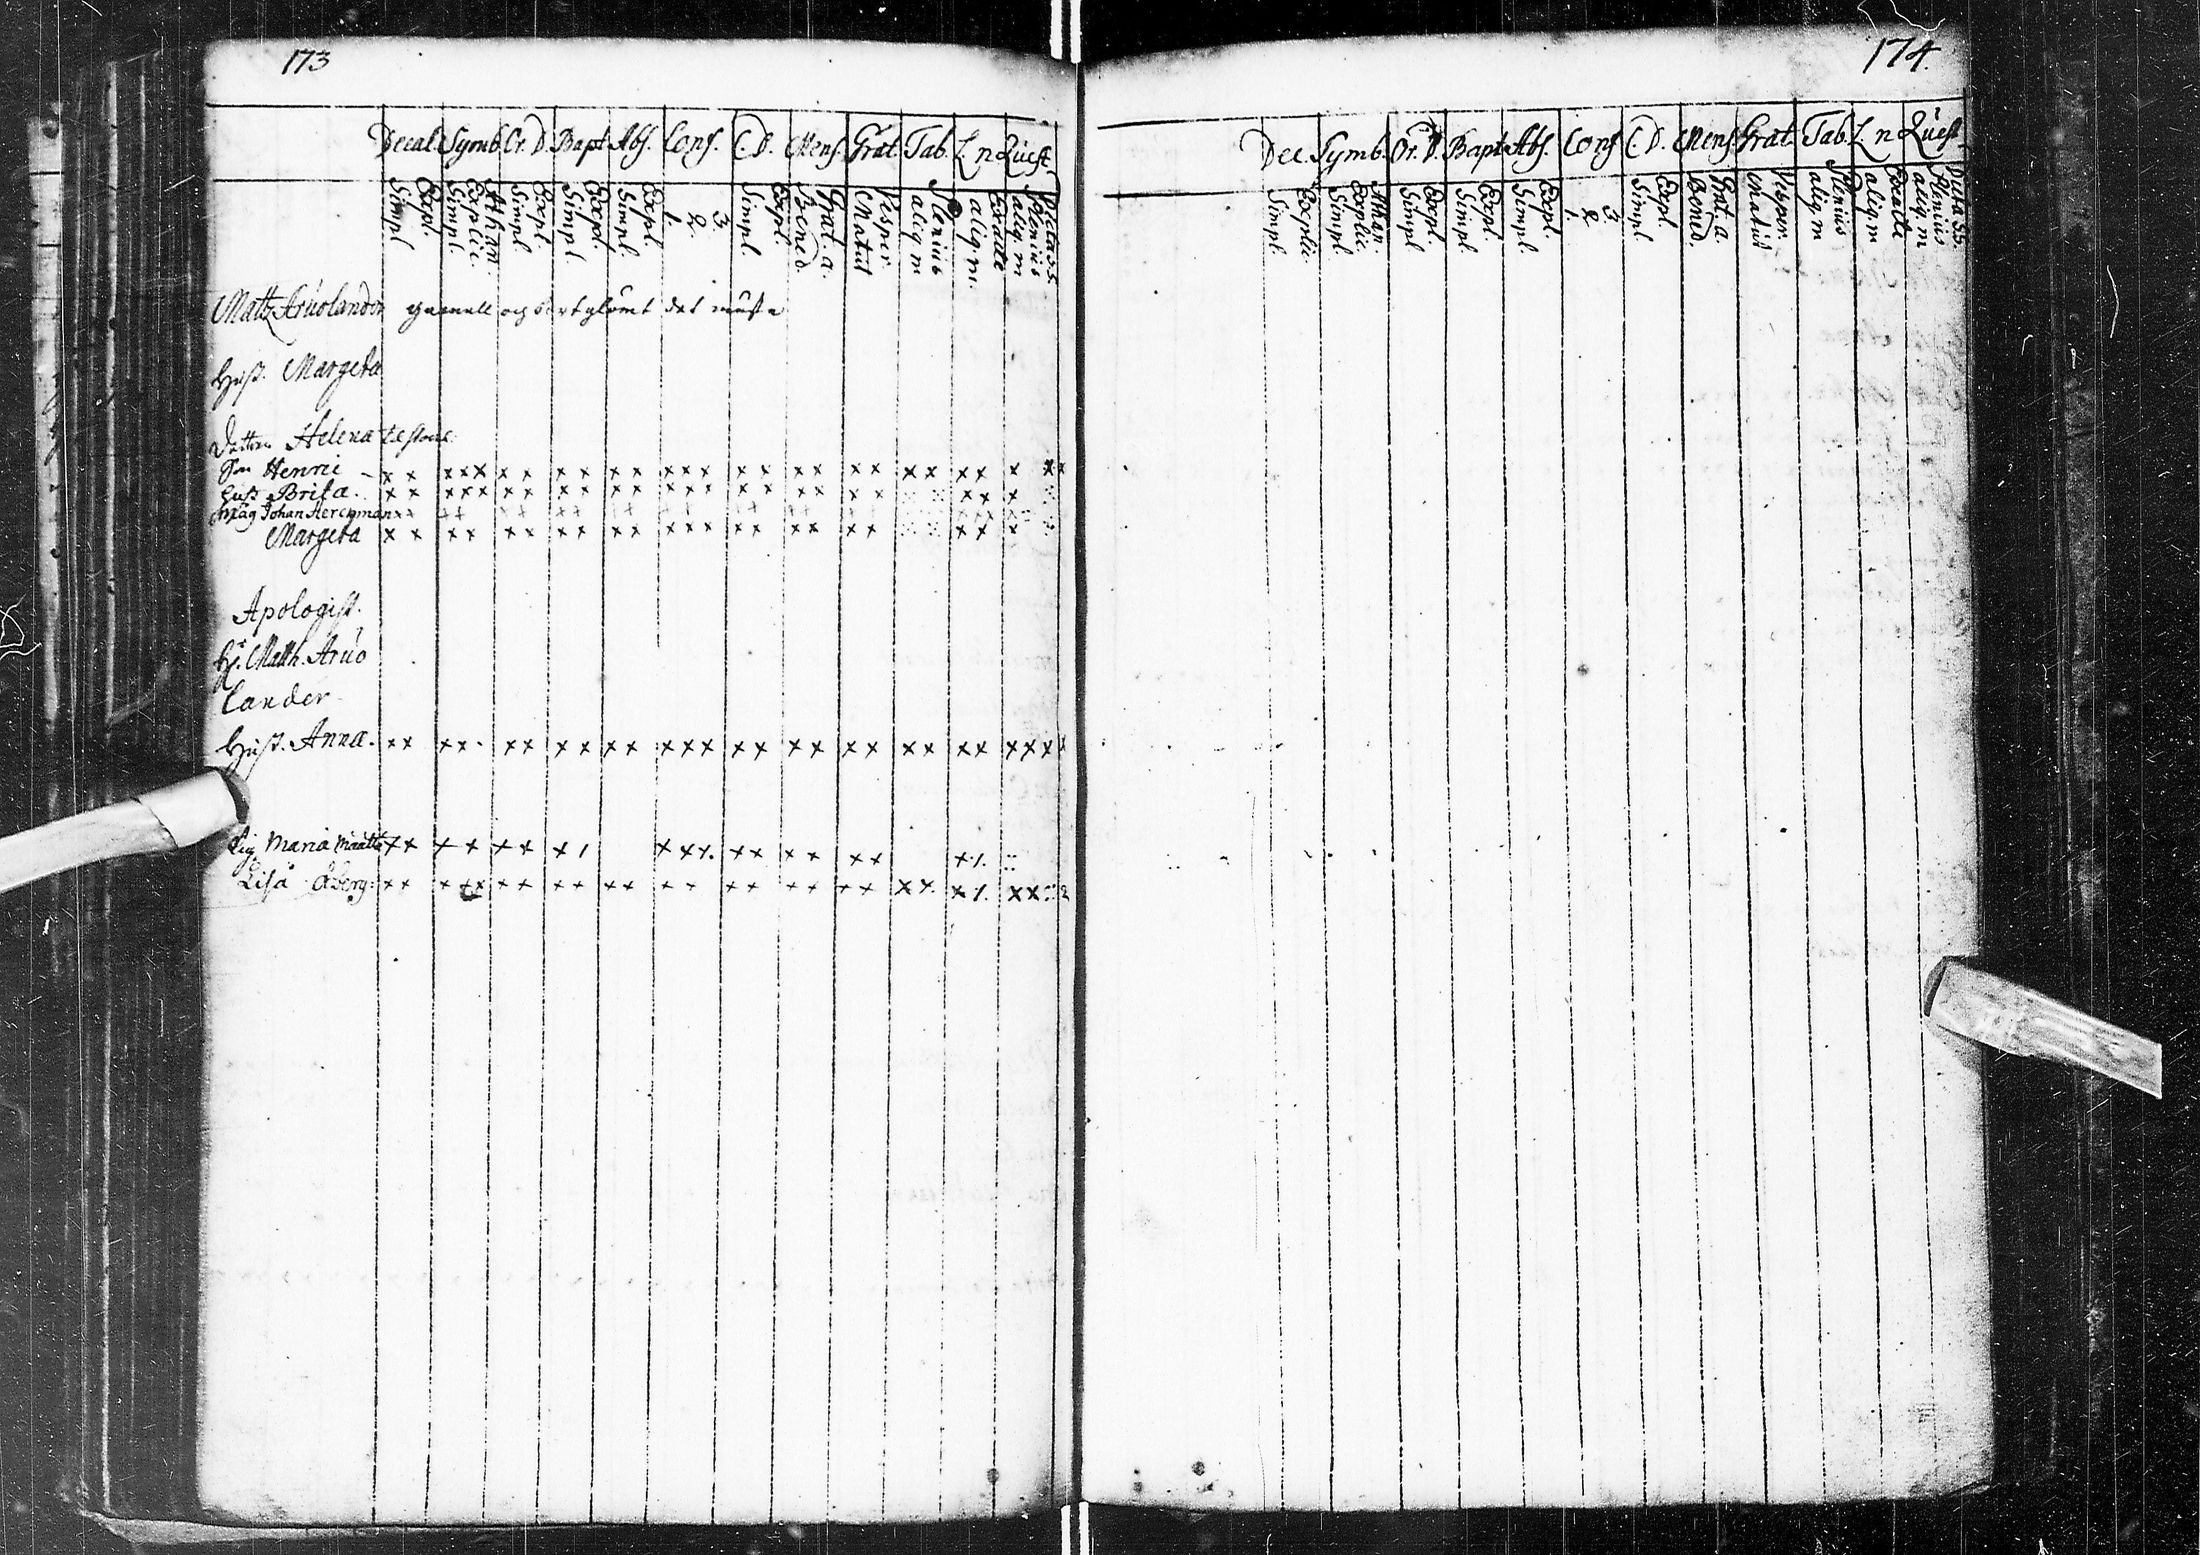 173
Decal. Symb. Or. D. Bapt. Abs. Conf. C. D. Mens. Grat. Tab. L. n. Quæst.
Simpl. Expl. Simpl. Explic. Athan. Simpl. Expl. Simpl. Expl. Simpl. Expl. 1. 2. 3 Simpl. Expl. Bened. Grat. a. Matut Vesper. aliq. m Plenius aliq. m. Exacte aliq. m Plenius Dicta SS
Mattz Aruolander gammall och bortglömt det mesta
Hust. Margeta
Dottren Helena
Son Henric x x x x x x x x x x x x x x x x x x x x x x x x x x x
Hust Brita. x x x x x x x x x x x x x x x x x x x x x x
Måg Johan
Margeta x x x x x x x x x x x x x x x x x x x x x
Apologist.
Hr. Matth. Aruo
lander
Hust. Anna. x x x x x x x x x x x x x x x x x x x x x x x x x x x x
Pig Maria x x x x x x x x x x x x x x x x
Lisa x x x x x x x x x x x x x x x x x x x x x x x
174.
Dec. Symb. Or. D. Bapt. Abs. Conf C. D. Mens. Grat. Tab. L. n Quæst.
Simpl. Explic. Simpl. Explic. Athan. Simpl. Expl. Simpl. Expl. Simpl. Expl. 1. 2 3. Simpl. Expl. Bened. Grat. a. Matut Vesper. aliq. m Plenius aliq. m Exacte aliq. m Plenius Dicta SS.